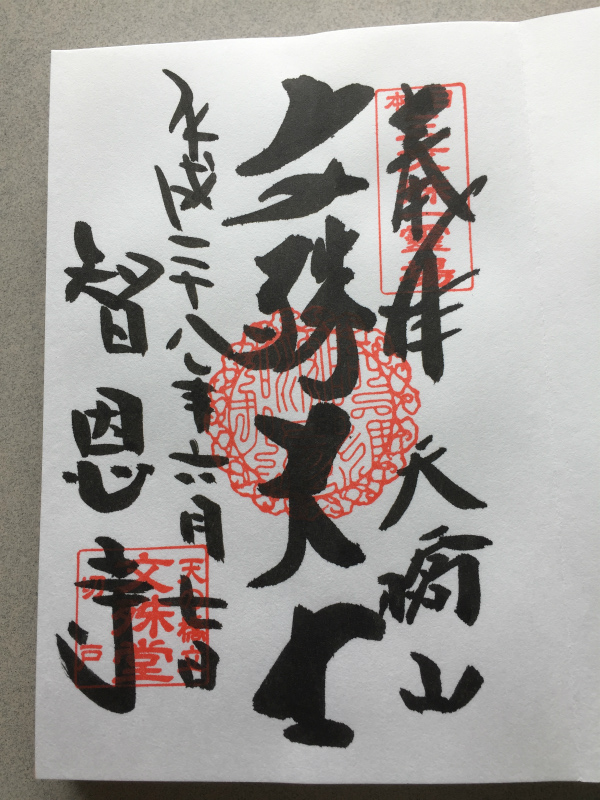 奉拝 天橋山
文殊大士
平成二十八年六月七日
智恩寺
文殊堂
切戸